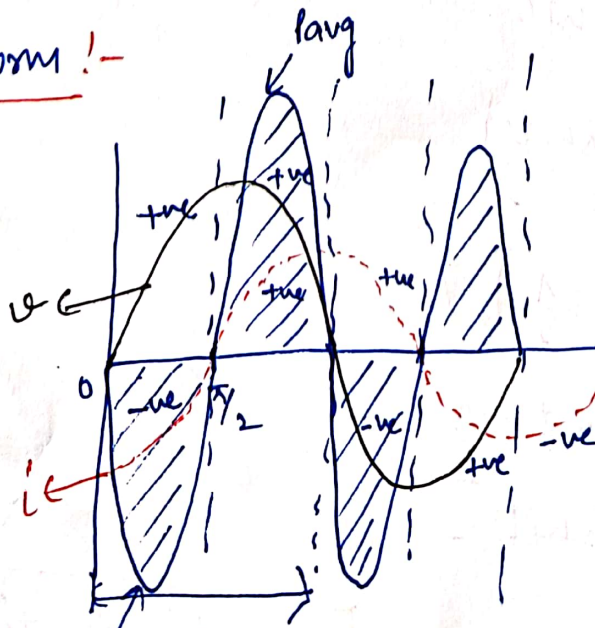 orm !-
Pavg
+ve
+ve
v
+ve
+ve
0
-ve
π/2
-ve
i
+ve
-ve